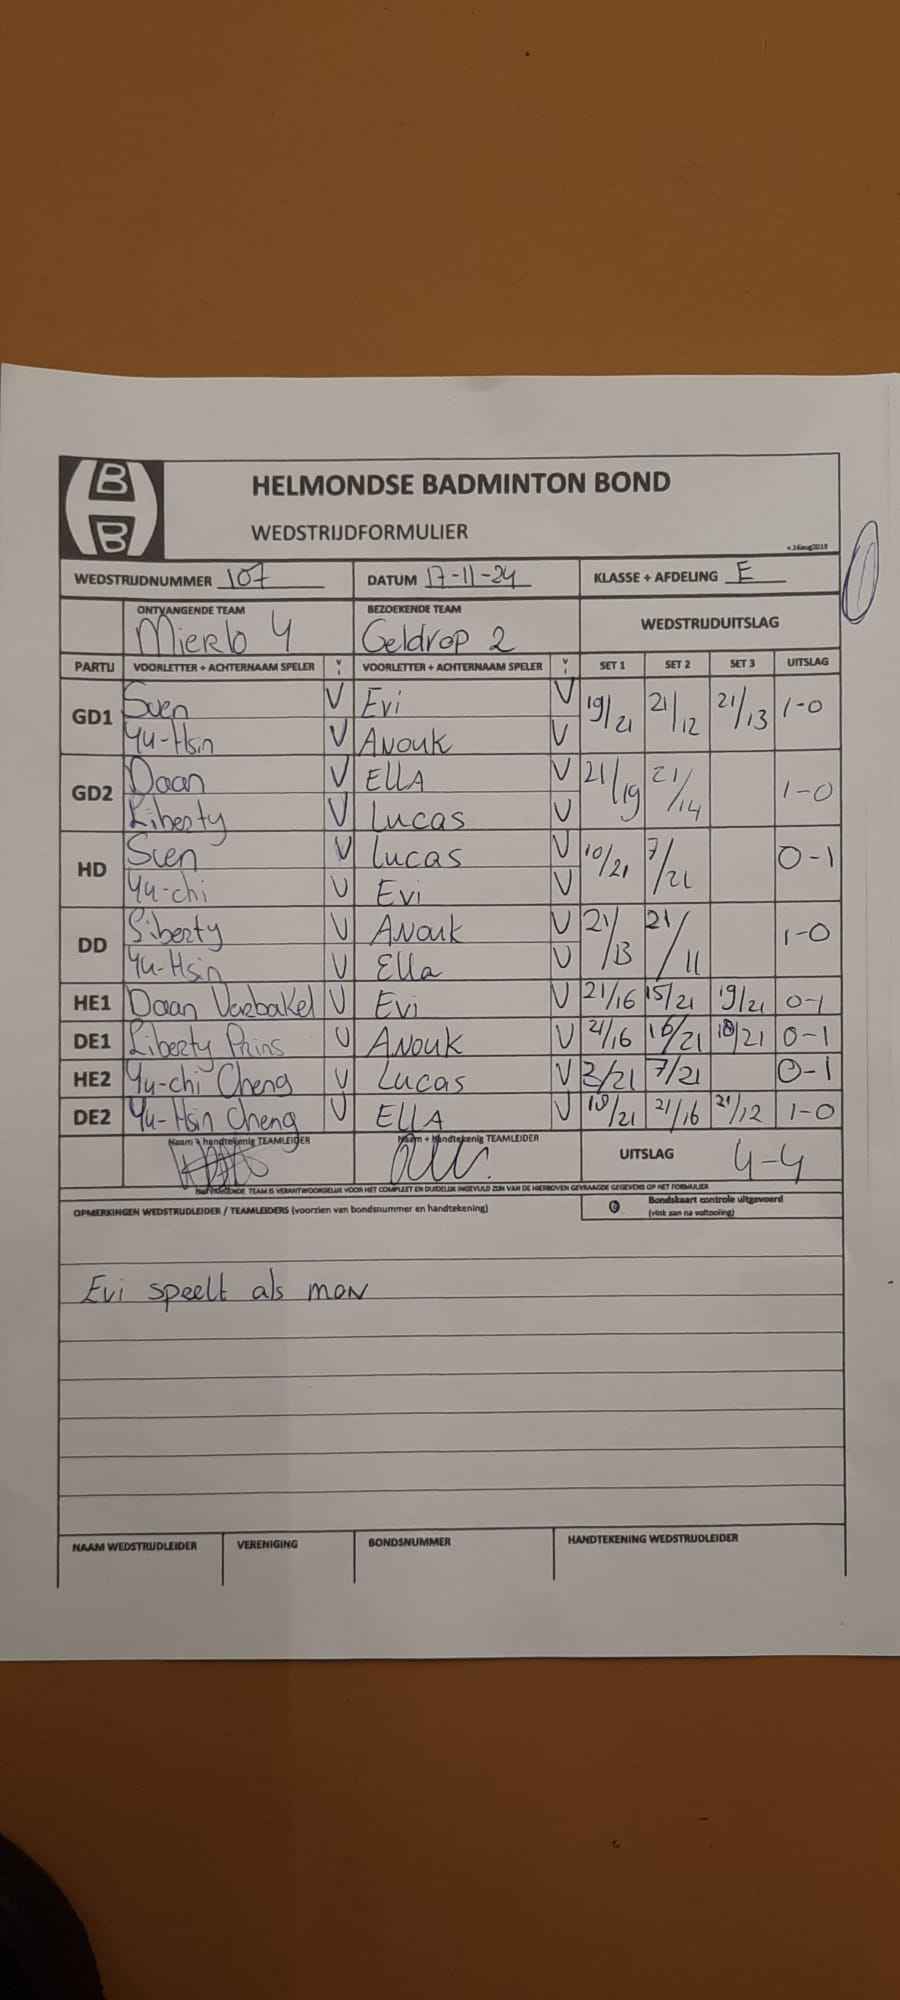 B
B
HELMONDSE BADMINTON BOND
WEDSTRIJDFORMULIER
v.16aug2019
WEDSTRIJDNUMMER 107 DATUM 17-11-24 KLASSE + AFDELING E
ONTVANGENDE TEAM BEZOEKENDE TEAM WEDSTRIJDUITSLAG
Mierlo 4 Geldrop 2
PARTIJ VOORLETTER + ACHTERNAAM SPELER V VOORLETTER + ACHTERNAAM SPELER V SET 1 SET 2 SET 3 UITSLAG
GD1 Sven V Evi V 19/21 21/12 21/13 1-0
Yu-Hsin V Anouk V
GD2 Daan V ELLA V 21/19 21/14 1-0
Liberty V Lucas V
HD Sven V Lucas V 10/21 7/21 0-1
Yu-chi V Evi V
DD Liberty V Anouk V 21/13 21/11 1-0
Yu-Hsin V Ella V
HE1 Daan Verbakel V Evi V 21/16 15/21 19/21 0-1
DE1 Liberty Prins V Anouk V 21/16 16/21 18/21 0-1
HE2 Yu-chi Cheng V Lucas V 3/21 7/21 0-1
DE2 Yu-Hsin Cheng V ELLA V 18/21 21/16 21/12 1-0
Naam + handtekenig TEAMLEIDER Naam + Handtekenig TEAMLEIDER UITSLAG 4-4
ONTVANGENDE TEAM IS VERANTWOORDELIJK VOOR HET COMPLEET EN DUIDELIJK INGEVULD ZIJN VAN DE HIERBOVEN GEVRAAGDE GEGEVENS OP HET FORMULIER
OPMERKINGEN WEDSTRIJDLEIDER / TEAMLEIDERS (voorzien van bondsnummer en handtekening) Bondskaart controle uitgevoerd
(vink aan na voltooiing)
Evi speelt als man
NAAM WEDSTRIJDLEIDER VERENIGING BONDSNUMMER HANDTEKENING WEDSTRIJDLEIDER